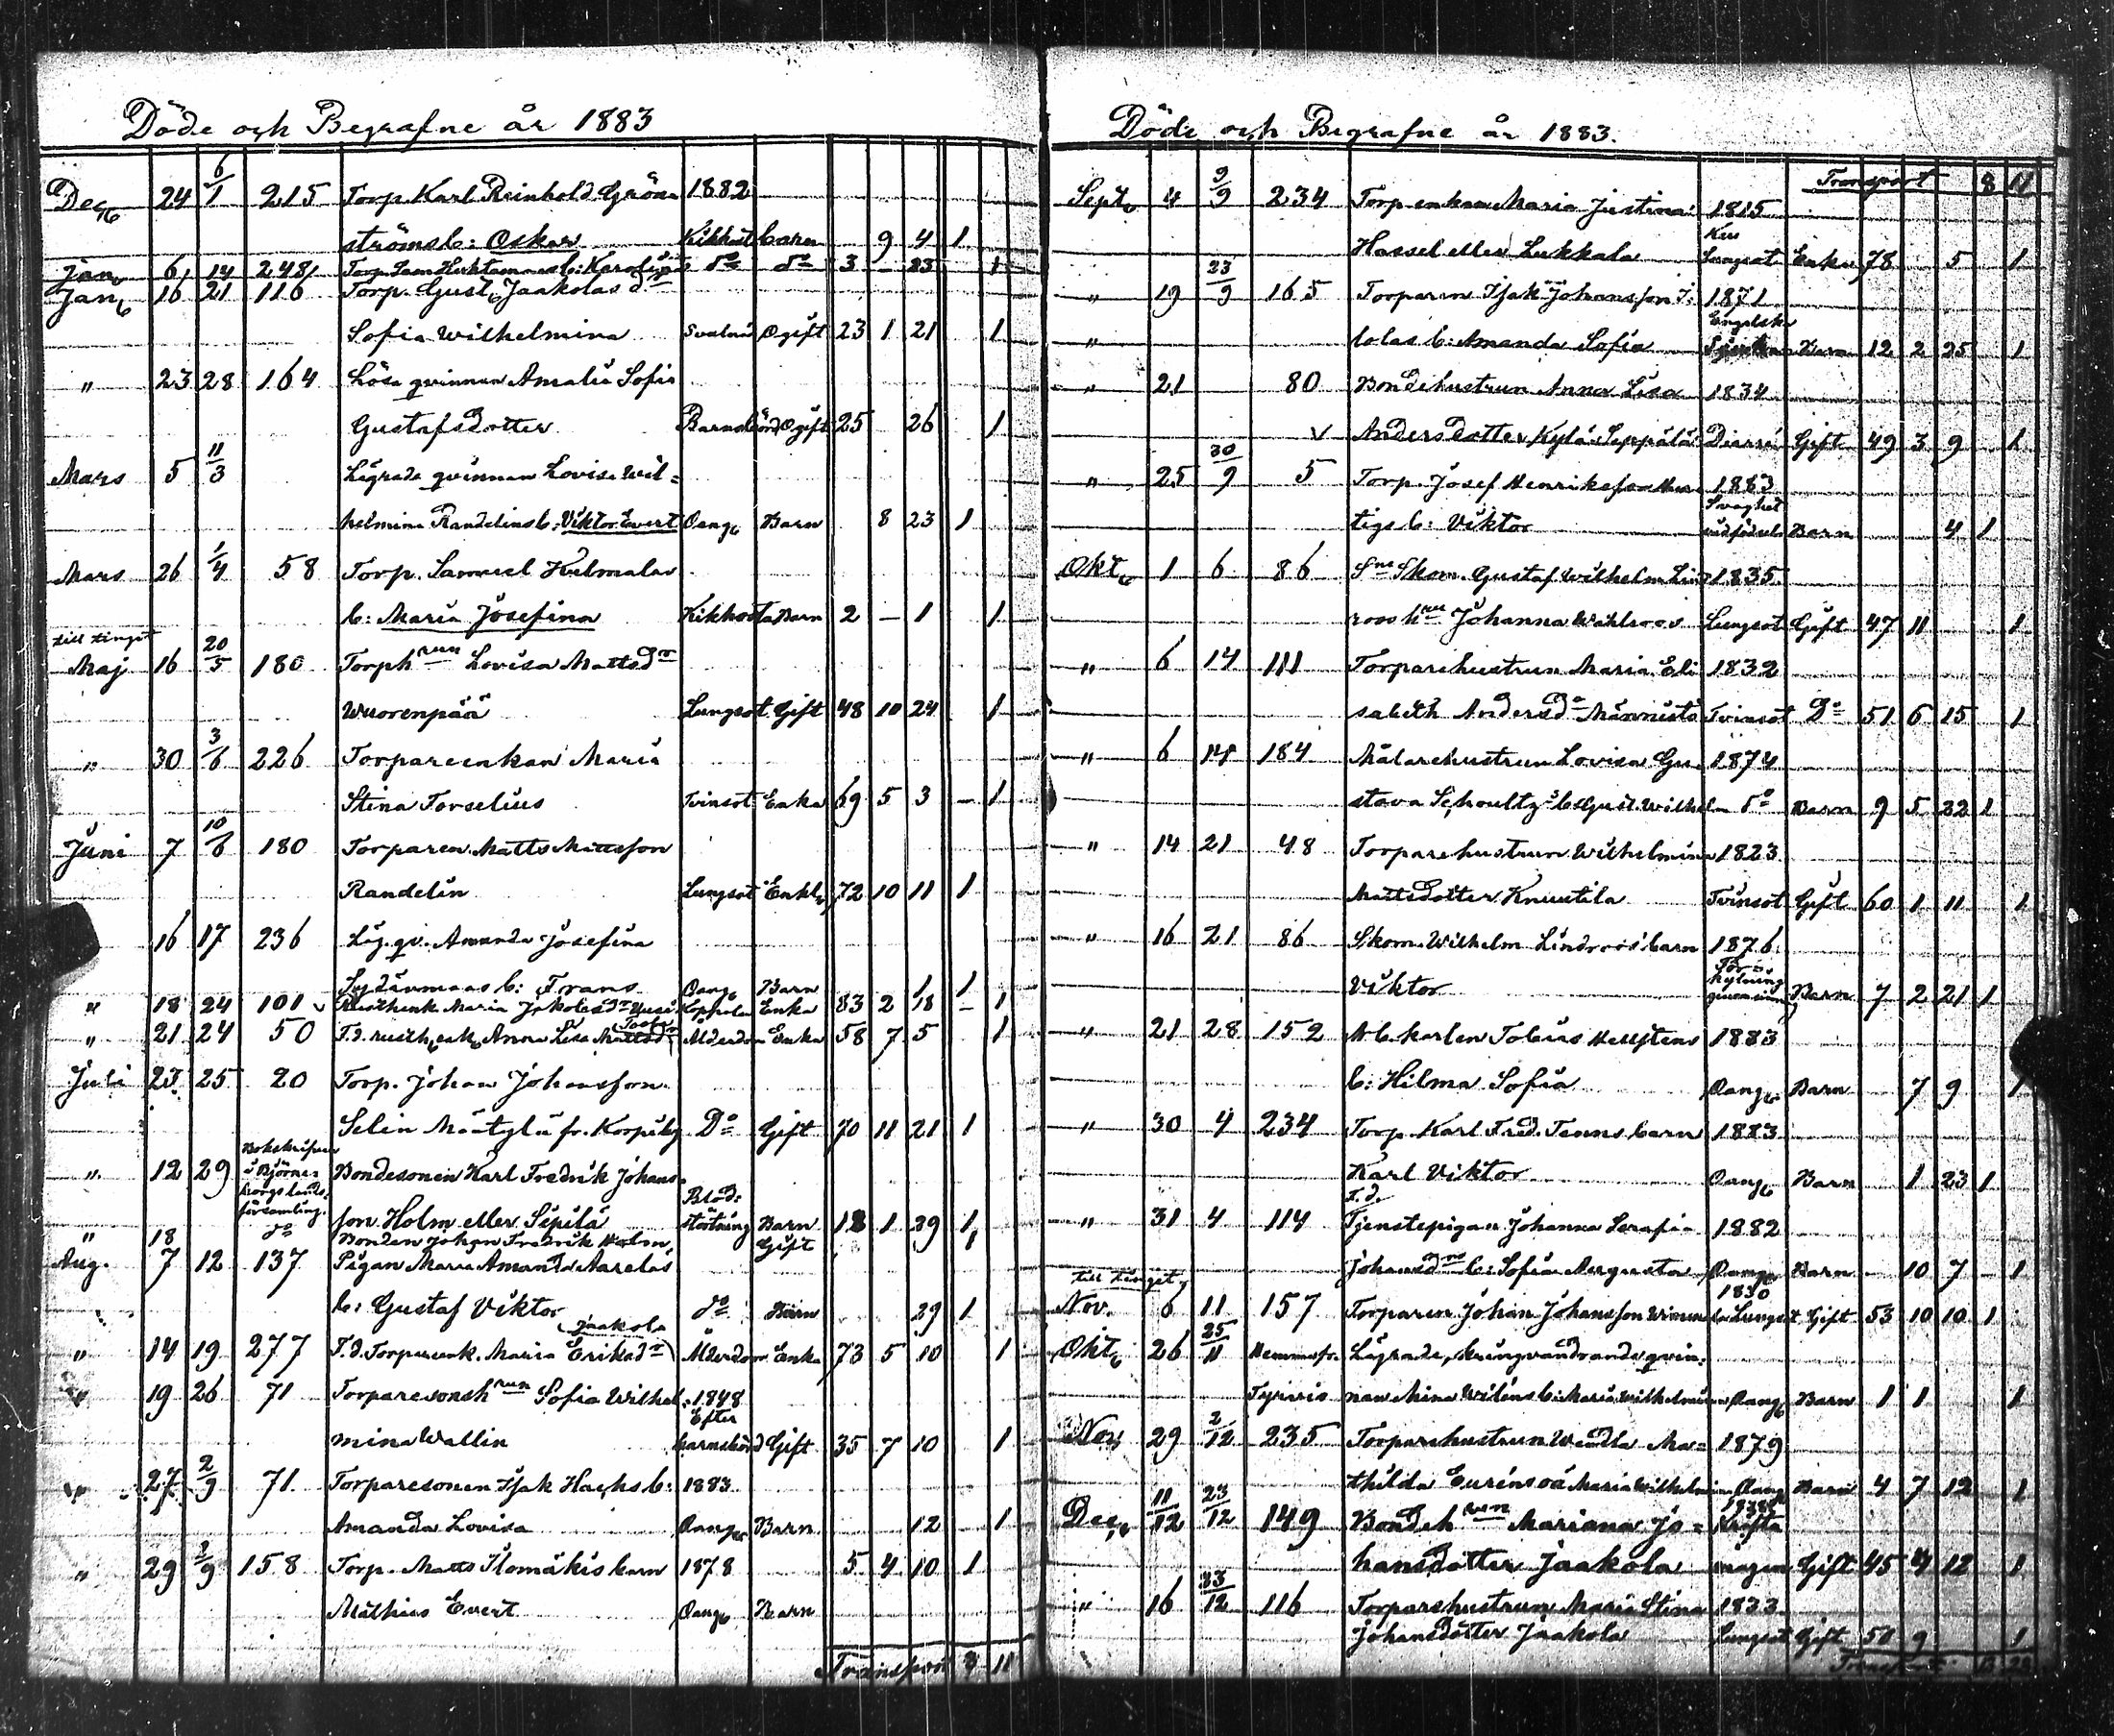 Döde och Begrafne år 1883
Dec. 24 6/1 215 Torp. Karl Reinhold Grön- 1882
ströms b: Oskar Kikhost barn 9 4 1
Jan. 6 14 248 Torp. b: do do 3 – 23 1
Jan. 16 21 116 Torp. Gust. Jaakolas dr
Sofia Wilhelmina Ogift 23 1 21 1
" 23 28 164 Lösa qvinnan Amalia Sofia
Gustafsdotter Barnsbörd Ogift 25 26 1
Mars 5 11/3 Lägrade qvinnan Lovisa Wil-
helmina Randelins b: Viktor Evert Oang. Barn 8 23 1
Mars 26 1/4 58 Torp. Samuel
b: Maria Josefina Kikhosta Barn 2 – 1 1
till tinget
Maj 16 20/5 180 Torph run Lovisa Mattsdr
Wuorenpää Lungsot Gift 48 10 24 1
" 30 3/6 226 Torpareenkan Maria
Stina Torselius Tvinsot Enka 69 5 3 – 1
Juni 7 10/6 180 Torparen Matts Mattsson
Randelin Lungsot Enkl. 72 10 11 1
16 17 236 Läg. qv. Amanda Josefina
b: Frans Oang. Barn 1 1
" 18 24 101 v Maria Koppor Enka 83 2 18 – 1
" 21 24 50 F.d. rusth. enk. Anna Lisa Mattsdr Ålderdom Enka 58 7 5 1
Juli 25 20 Torp. Johan Johansson
Selin Mäntylä fr. Korpiby Do Gift 70 11 21 1
" 12 29 i Björne- borgs lands- församling. Bondesonen Karl Fredrik Johans-
son Holm eller Sipilä Blod- störtning Barn 1 29 1
" 18 do Bonden Johan Fredrik Holm Gift 1
Aug. 7 12 137 Pigan Maria Amanda Aarelas
b: Gustaf Viktor do Barn 29 1
Jaakola
" 14 19 277 F.d. Torpareenk. Maria Eriksdr Ålderdom Enka 73 5 10 1
" 19 26 71 Torparesonsh run Sofia Wilhel- 1848
mina Wallin Efter barnsbörd Gift 35 7 10 1
" 27 2/9 71 Torparesonen Isak b: 1883
Amanda Lovisa Oang. Barn 12 1
" 29 2/9 158 Torp. Matts Ilomäkis barn 1878 5 4 10 1
Mathias Evert Oang. Barn
Transport 8 11
Döde och Begrafne år 1883.
Transport 8 11
Sept. 4 9/9 234 Torp. enkan Maria Justina 1815
Hassel eller Lukkala Lungsot Enka 78 5 1
" 19 23/9 165 Torparen Isak Johansson 1871
" lolas b: Amanda Sofia Engelska Barn 12 2 25 1
" 21 80 Bondehustrun Anna Lisa 1834
v Andersdotter Kylä-Seppälä Diarré Gift 49 3 9 1
" 25 30/9 5 Torp. Josef Henriksson 1883
tigs b: Viktor Svaghet vid födseln Barn 4 1
Okt. 1 6 86 Skom. Gustaf Wilhelm Lind- 1835
roos h ru Johanna Wahlroos Lungsot Gift 47 11 1
" 6 14 111 Torparehustrun Maria Eli- 1832
sabeth Andersdr Männistö Tvinsot Do 51 6 15 1
" 6 14 184 Målarehustrun Lovisa Gu- 1874
stava Schoultz b: Gust. Wilhelm do Barn 9 5 22 1
" 14 21 48 Torparehustrun Wilhelmina 1823
Mattsdotter Knuutila Tvinsot Gift 60 1 11 1
" 16 21 86 Skom. Wilhelm Lindroos' barn 1876
Viktor Förkylning Barn 7 2 21 1
" 21 28 152 Arb.karlen Tobias Hellstens 1883
b: Hilma Sofia Oang. Barn 7 9 1
" 30 4 234 Torp. Karl Fred. Tenns barn 1883
Karl Viktor Oang. Barn 1 23 1
F.d.
" 31 4 114 Tjenstepigan Johanna Serafia 1882
Johansdrs b: Sofia Augusta Oang. Barn – 10 7 – 1
till tinget
Nov. 6 11 157 Torparen Johan Johansson 1830 Lungsot Gift 53 10 10 1
Okt. 26 25/11 Hemma fr. Lägrade, kringvandrande qvin-
Tyrvis nan Mina Wiléns b: Maria Wilhelmina Oang. Barn 1 1 1
Nov. 29 2/12 235 Torparehustrun Wendla Ma- 1879
thilda Maria Wilhelmina Oang. Barn 4 7 12 1
Dec. 11/12 23/12 149 Bondeh run Mariana Jo- Kräfta
hansdotter Jaakola magen Gift 45 4 12 1
" 16 23/12 116 Torparehustrun Maria Stina 1833
Johansdotter Jaakola Lungsot Gift 50 9 1
Transport